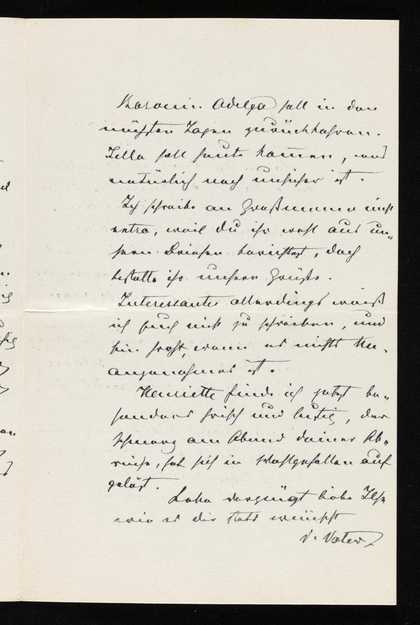 Baronin Adelga soll in den
nächsten Tagen zurückkehren.
Zilla soll heute kommen, was
natürlich noch unsicher ist.
Ich schreibe an Großmama nicht
extra, weil du ihr wohl aus un-
sern Briefen berichtest, doch
bestelle ihr unsere Grüße.
Interessantes allerdings weiß
ich auch nicht zu schreiben, und
bin froh, wenn es nichts Un-
angenehmes ist.
Henriette finde ich jetzt be-
sonders frisch und lustig, der
Schmerz am Abend deiner Ab-
reise, hat sich in Wohlgefallen auf-
gelöst.
Lebe vergnügt liebe Ilse
wie es dir stets wünscht
d. Vater